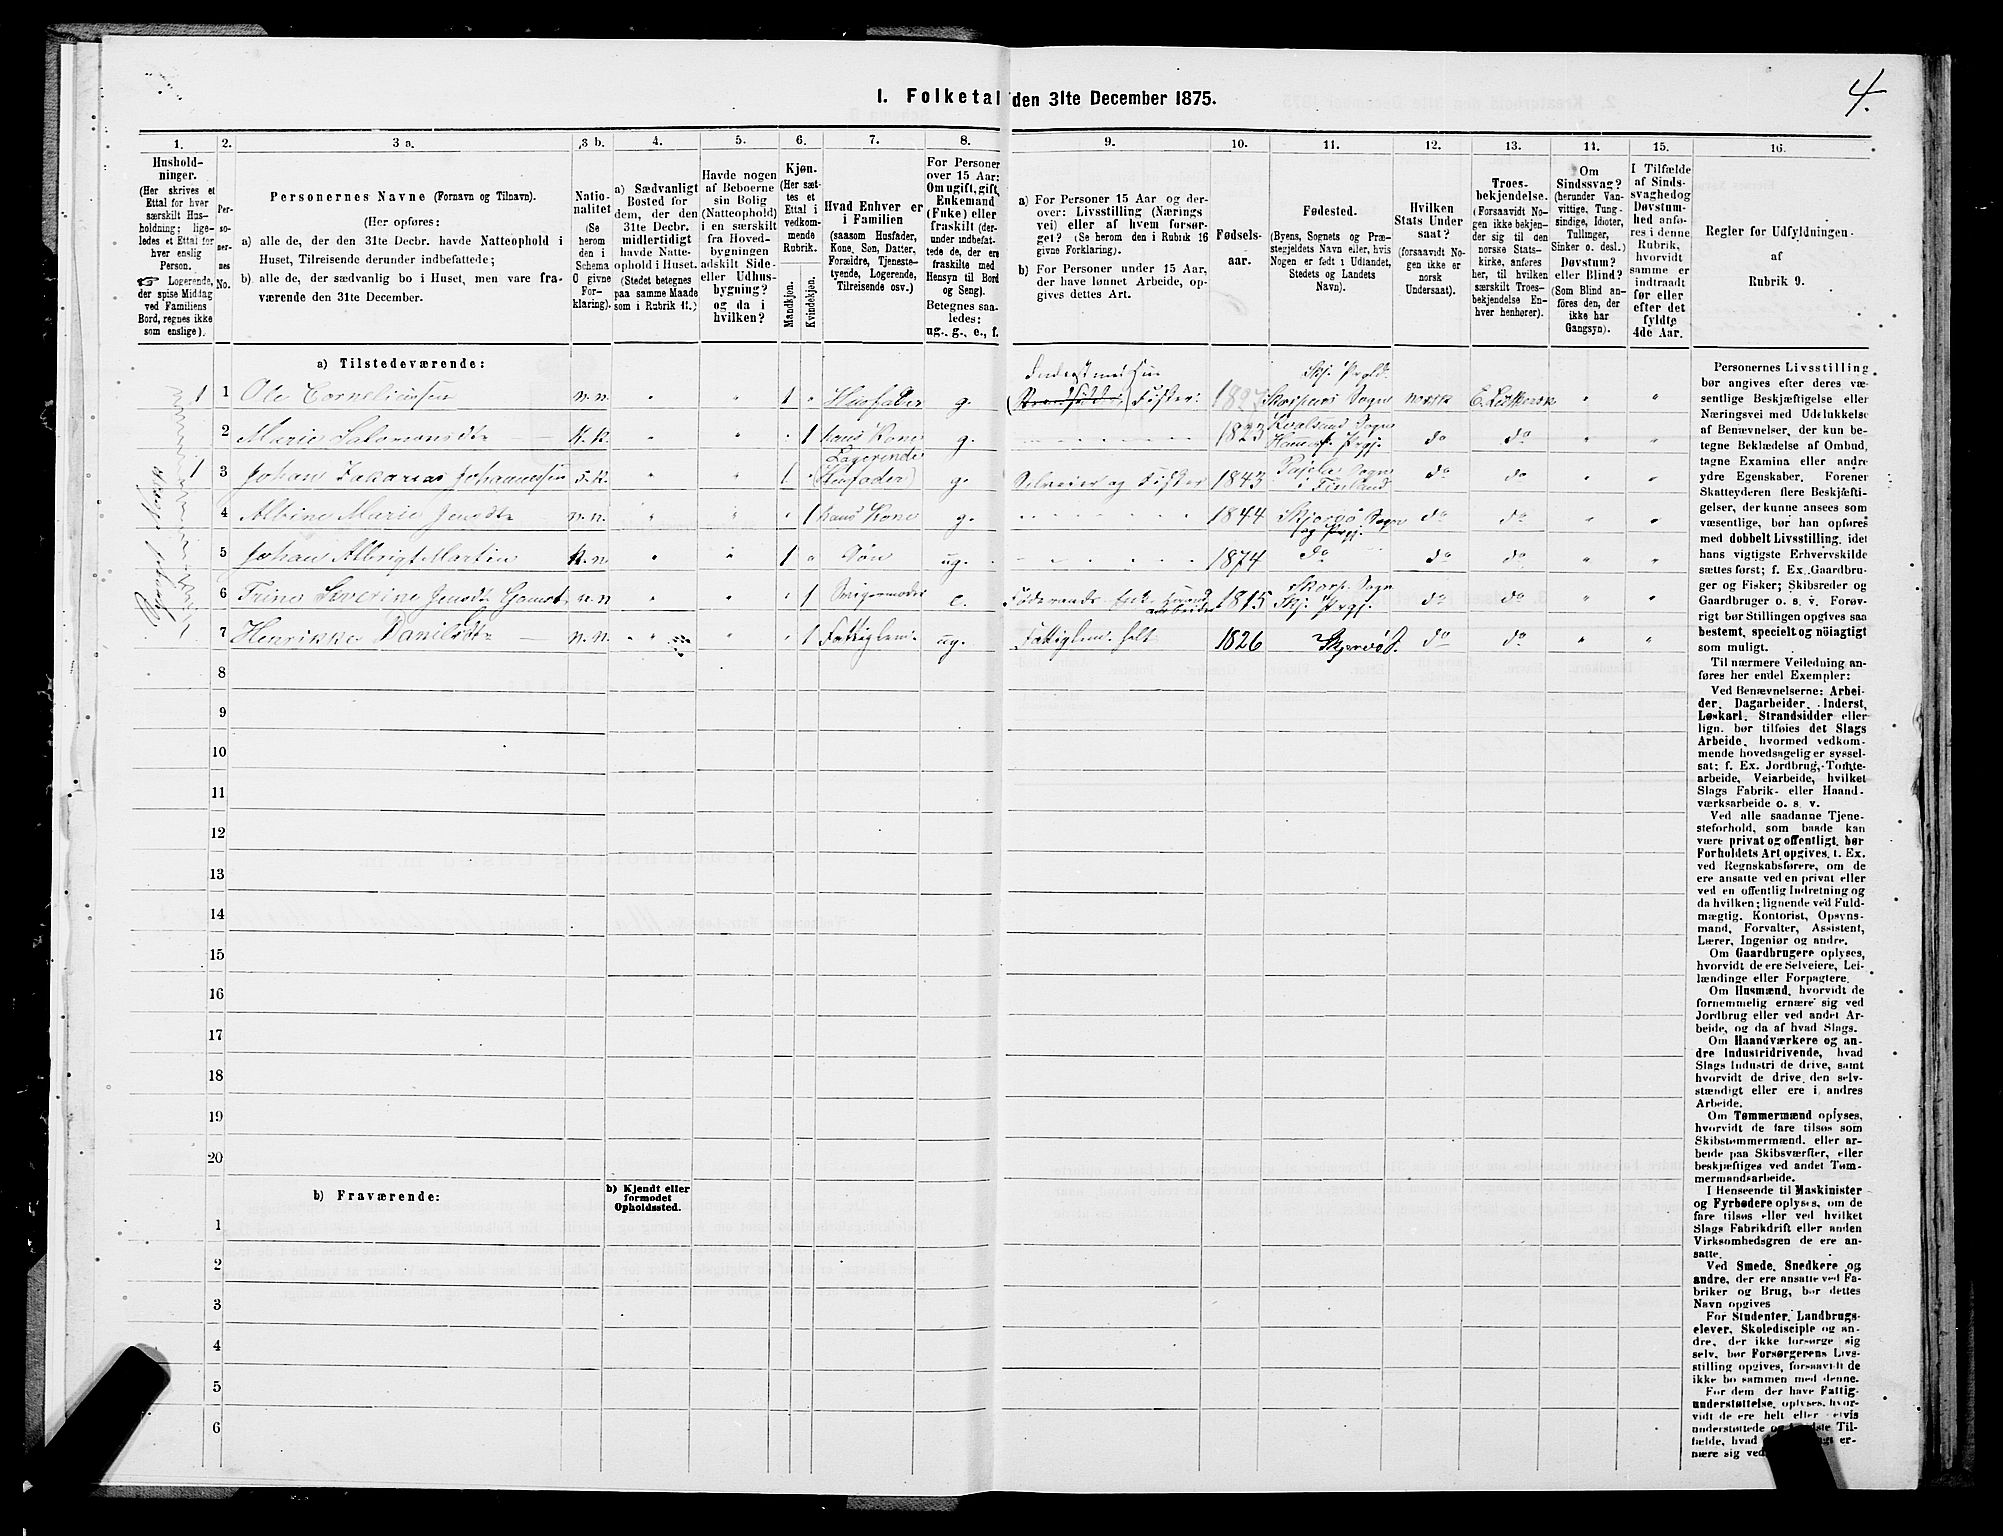 4.
I. Folketal den 31te December 1875.
1. 2. 3 a. 3 b. 4. 5. 6. 7. 8. 9. 10. 11. 12. 13. 14. 15. 16.
Hushold-
ninger.
(Her skrives et
Ettal for hver
særskilt Hus-
holdning; lige-
ledes et Ettal for
hver enslig
Person.
☞ Logerende,
der spise Middag
ved Familiens
Bord, regnes ikke
som enslige).
Per-
so-
ner-
nes
No.
Personernes Navne (Fornavn og Tilnavn).
(Her opføres:
a) alle de, der den 31te Decbr. havde Natteophold i
Huset, Tilreisende derunder indbefattede;
b) alle de, der sædvanlig bo i Huset, men vare fra-
værende den 31te December.
Natio-
nalitet
(Se
herom
den i
Schema
O givne
For-
klaring).
a) Sædvanligt
Bosted for
dem, der den
31te Decbr.
midlertidigt
havde Natte-
ophold i Huset.
(Stedet betegnes
paa samme Maade
som i Rubrik 11.)
Havde nogen
af Beboerne
sin Bolig
(Natteophold)
i en særskilt
fra Hoved-
bygningen
adskilt Side-
eller Udhus-
bygning?
og da i
hvilken?
Kjøn.
(Her sæt-
tes et
Ettal i
vedkom-
mende
Rubrik.
Mandkjøn.
Kvindekjøn.
Hvad Enhver er
i Familien
(saasom Husfader,
Kone, Søn, Datter,
Forældre, Tjeneste-
tyende, Logerende,
Tilreisende osv.)
For Personer
over 15 Aar:
Om ugift, gift,
Enkemand
(Enke) eller
fraskilt (der-
under indbefat-
tede de, der ere
fraskilte med
Hensyn til Bord
og Seng).
Betegnes saa-
ledes:
ug., g., e., f.
a) For Personer 15 Aar og der-
over: Livsstilling (Nærings-
vei) eller af hvem forsør-
get? (Se herom den i Rubrik 16
givne Forklaring).
b) For Personer under 15 Aar,
der have lønnet Arbeide, op-
gives dettes Art.
Fødsels-
aar.
Fødested.
(Byens, Sognets og Præ-
stegjeldets Navn eller, hvis
Nogen er født i Udlandet,
Stedets og Landets
Navn).
Hvilken
Stats Under-
saat?
(forsaavidt No-
gen ikke er
norsk
Undersaat).
Troes-
bekjendelse.
(Forsaavidt No-
gen ikke bekjen-
der sig til den
norske Stats-
kirke, anføres
her, til hvilken
særskilt Troes-
bekjendelse En-
hver henhører).
Om
Sindssvag?
(herunder Van-
vittige, Tung-
sindige, Idioter,
Tullinger,
Sinker o. desl.)
Døvstum?
eller Blind?
(Som Blind an-
føres den, der
ikke har
Gangsyn).
I Tilfælde
af Sinds-
svaghed og
Døvstum-
hed anfø-
res i denne
Rubrik,
hvorvidt
samme er
indtraadt
før eller
efter det
fyldte
4de Aar.
Regler for Udfyldningen
af
Rubrik 9.
a) Tilstedeværende:
Inderst med Hus
Skj. Prgld.
1 1 Ole Corneliussen n.n. " " 1 " Husfader g. (Strandsidder) Fisker. 1827 Skorpens Sogn norsk E. Luthersk " "
2 Marie Salomonsdtr K.K. " " " 1 hans Kone g. 1823 Kvalsund Sogn Hammerf. Prgj. do do " "
1 3 Johan Zakarias Johannessen F.K. " " 1 " Logerende (Husfader) g. Selveier og Fisker 1843 Pajela Sogn i Finland do do " "
4 Albine Marie Jensdtr n.n. " " " 1 hans Kone g. 1844 Skjervö Sogn og Prgj. do do " "
5 Johan Albrigt Martin K.n. " " 1 " Søn ug. 1874 do do do " "
6 Trine Severine Jensdtr n.n " " " 1 e. Föderaads Enke 1815 Skorp. Sogn Skj. Prgj. do do " "
7 Henrikke Danilsdtr n.n. " " " 1 Fattiglem ug. Fattiglem helt 1826 Skjervö S. do do " "
8
9
10
11
12
13
14
15
16
17
18
19
20
b) Fraværende:
b) Kjendt eller
formodet
Opholdssted.
1
2
3
4
5
6
Personernes Livsstilling
bør angives efter deres væ-
sentlige Beskjæftigelse eller
Næringsvei med Udelukkelse
af Benævnelser, der kun be-
tegne Beklædelse af Ombud,
tagne Examina eller andre
ydre Egenskaber. Forener
Skatteyderen flere Beskjæfti-
gelser, der kunne ansees som
væsentlige, bør han opføres
med dobbelt Livsstilling, idet
hans vigtigste Erhvervskilde
sættes først; f. Ex. Gaardbru-
ger og Fisker; Skibsreder og
Gaardbruger o. s. v. Forøv-
rigt bør Stillingen opgives saa
bestemt, specielt og nöiagtigt
som muligt.
Til nærmere Veiledning an-
føres her endel Exempler:
Ved Benævnelserne: Arbei-
der, Dagarbeider, Inderst,
Løskarl, Strandsidder eller
lign. bør tilføies det Slags
Arbeide, hvormed vedkom-
mende hovedsagelig er syssel-
sat; f. Ex. Jordbrug, Tomte-
arbeide, Veiarbeide, hvilket
Slags Fabrik- eller Haand-
værksarbeide o. s. v.
Ved alle saadanne Tjene-
steforhold, som baade kan
være privat og offentligt, bør
Forholdets Art opgives, t. Ex.
ved Regnskabsførere, om de
ere ansatte ved en privat eller
ved en offentlig Indretning og
da hvilken; lignende ved Fuld-
mægtig, Kontorist, Opsyns-
mand, Forvalter, Assistent,
Lærer, Ingeniør og andre.
Om Gaardbrugere oplyses,
hvorvidt de ere Selveiere, Lei-
lændinge eller Forpagtere.
Om Husmænd, hvorvidt de
fornemmelig ernære sig ved
Jordbrug eller ved andet Ar-
beide, og da af hvad Slags.
Om Haandværkere og an-
dre Industridrivende, hvad
Slags Industri de drive, samt
hvorvidt de drive den selv-
stændigt eller ere i andres
Arbeide.
Om Tømmermænd oplyses,
hvorvidt de fare tilsøs som
Skibstømmermænd, eller ar-
beide paa Skibsværfter, eller
beskjæftiges ved andet Tøm-
mermandsarbeide.
I Henseende til Maskinister
og Fyrbødere oplyses, om de
fare tilsøs eller ved hvilket
Slags Fabrikdrift eller anden
Virksomhedsgren de ere an-
satte.
Ved Smede, Snedkere og
andre, der ere ansatte ved Fa-
briker og Brug, bør dettes
Navn opgives
For Studenter, Landbrugs-
elever, Skoledisciple og an-
dre, der ikke forsørge sig
selv, bør Forsørgerens Livs-
stilling opgives, forsaavidt de
ikke bo sammen med denne.
For dem, der have Fattig-
understøttelse, oplyses, hvor-
vidt de ere helt eller delvis
understøttede
fælde, hvad
nære sig ved